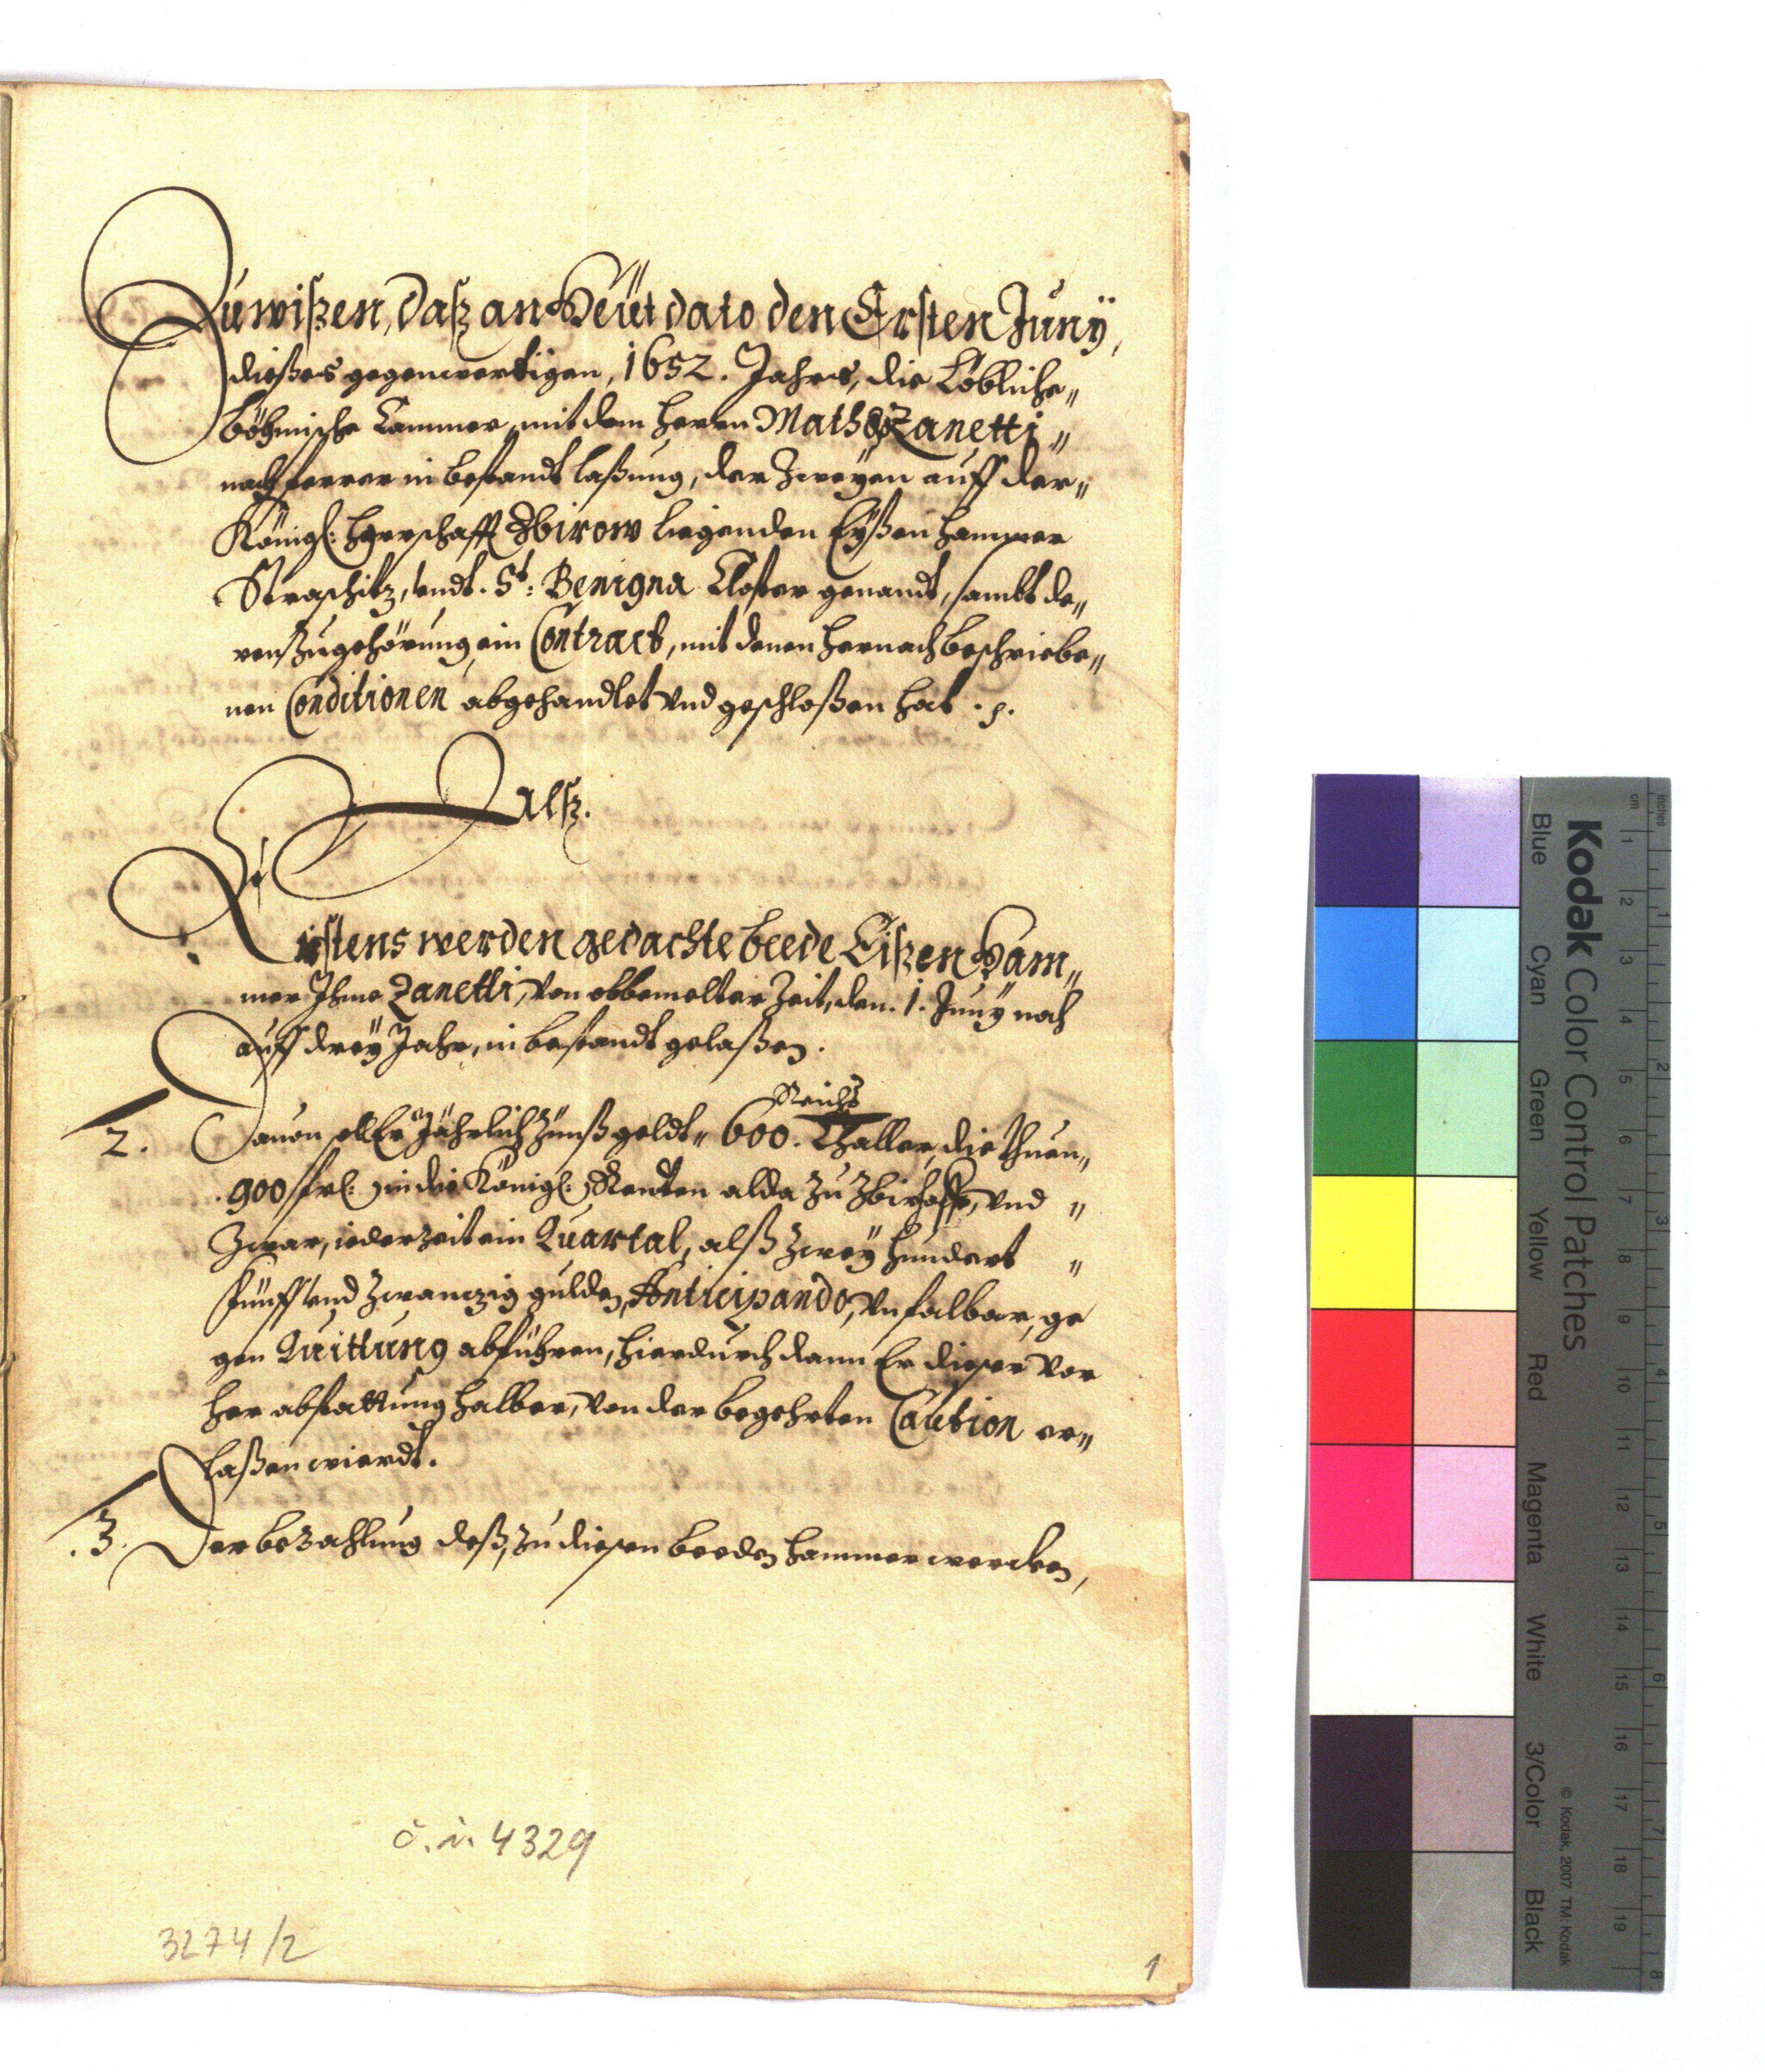 Zuwißen, Daß an Heüt dato den Ersten Junÿ,
dießes gegenwertigen, 1652. Jahrs, die Löbliche„
böhmische Cammer, mit dem herrn Zanetti„
nach ferrer in bestandt laßung, der Zweÿen auff der„
Königl: herrschafft Zbirow liegenden Eÿßen hammer
Straschitz, vndt. St: Benigna Closter genandt, sambt de„
ren Zugehörung, ein Contract, mit denen hernach beschriebe„
nen Conditionen abgehandlet vnd geschloßen hat. p.
Alß.
Erstens werden gedachte beede Eißen Ham„
mer Ihme Zanetti, von obbemelter Zeit, den. 1. Junÿ noch
auff dreÿ Jahr, in bestandt gelaßen.
2. Dauon soll Er Jährlich Zünß geldt„ 600. Reichs Thaller, die thuen„
900 f in die Königl: Renten alda Zu Zbirhoffe, vnd „
Zwar, iederzeit ein Quartal, alß Zweÿ hundert „
fünff vnd Zwanczig gulden, Anticipando, vnfalbar, ge
gen Quittung abführen, hierdurch dann Er dieser vor
her abstattung halber, von der begehrten Caution er„
laßen wierdt.
.3. Der bezahlung deß, zu diesen beeden hammer wercken,
č. i. 4329
3274/2
1
inches
cm
1 2 3 4 5 6 7 8
1 2 3 4 5 6 7 8 9 10 11 12 13 14 15 16 17 18 19
Kodak Color Control Patches
© Kodak, 2007 TM: Kodak
Blue Cyan Green Yellow Red Magenta White 3/Color Black